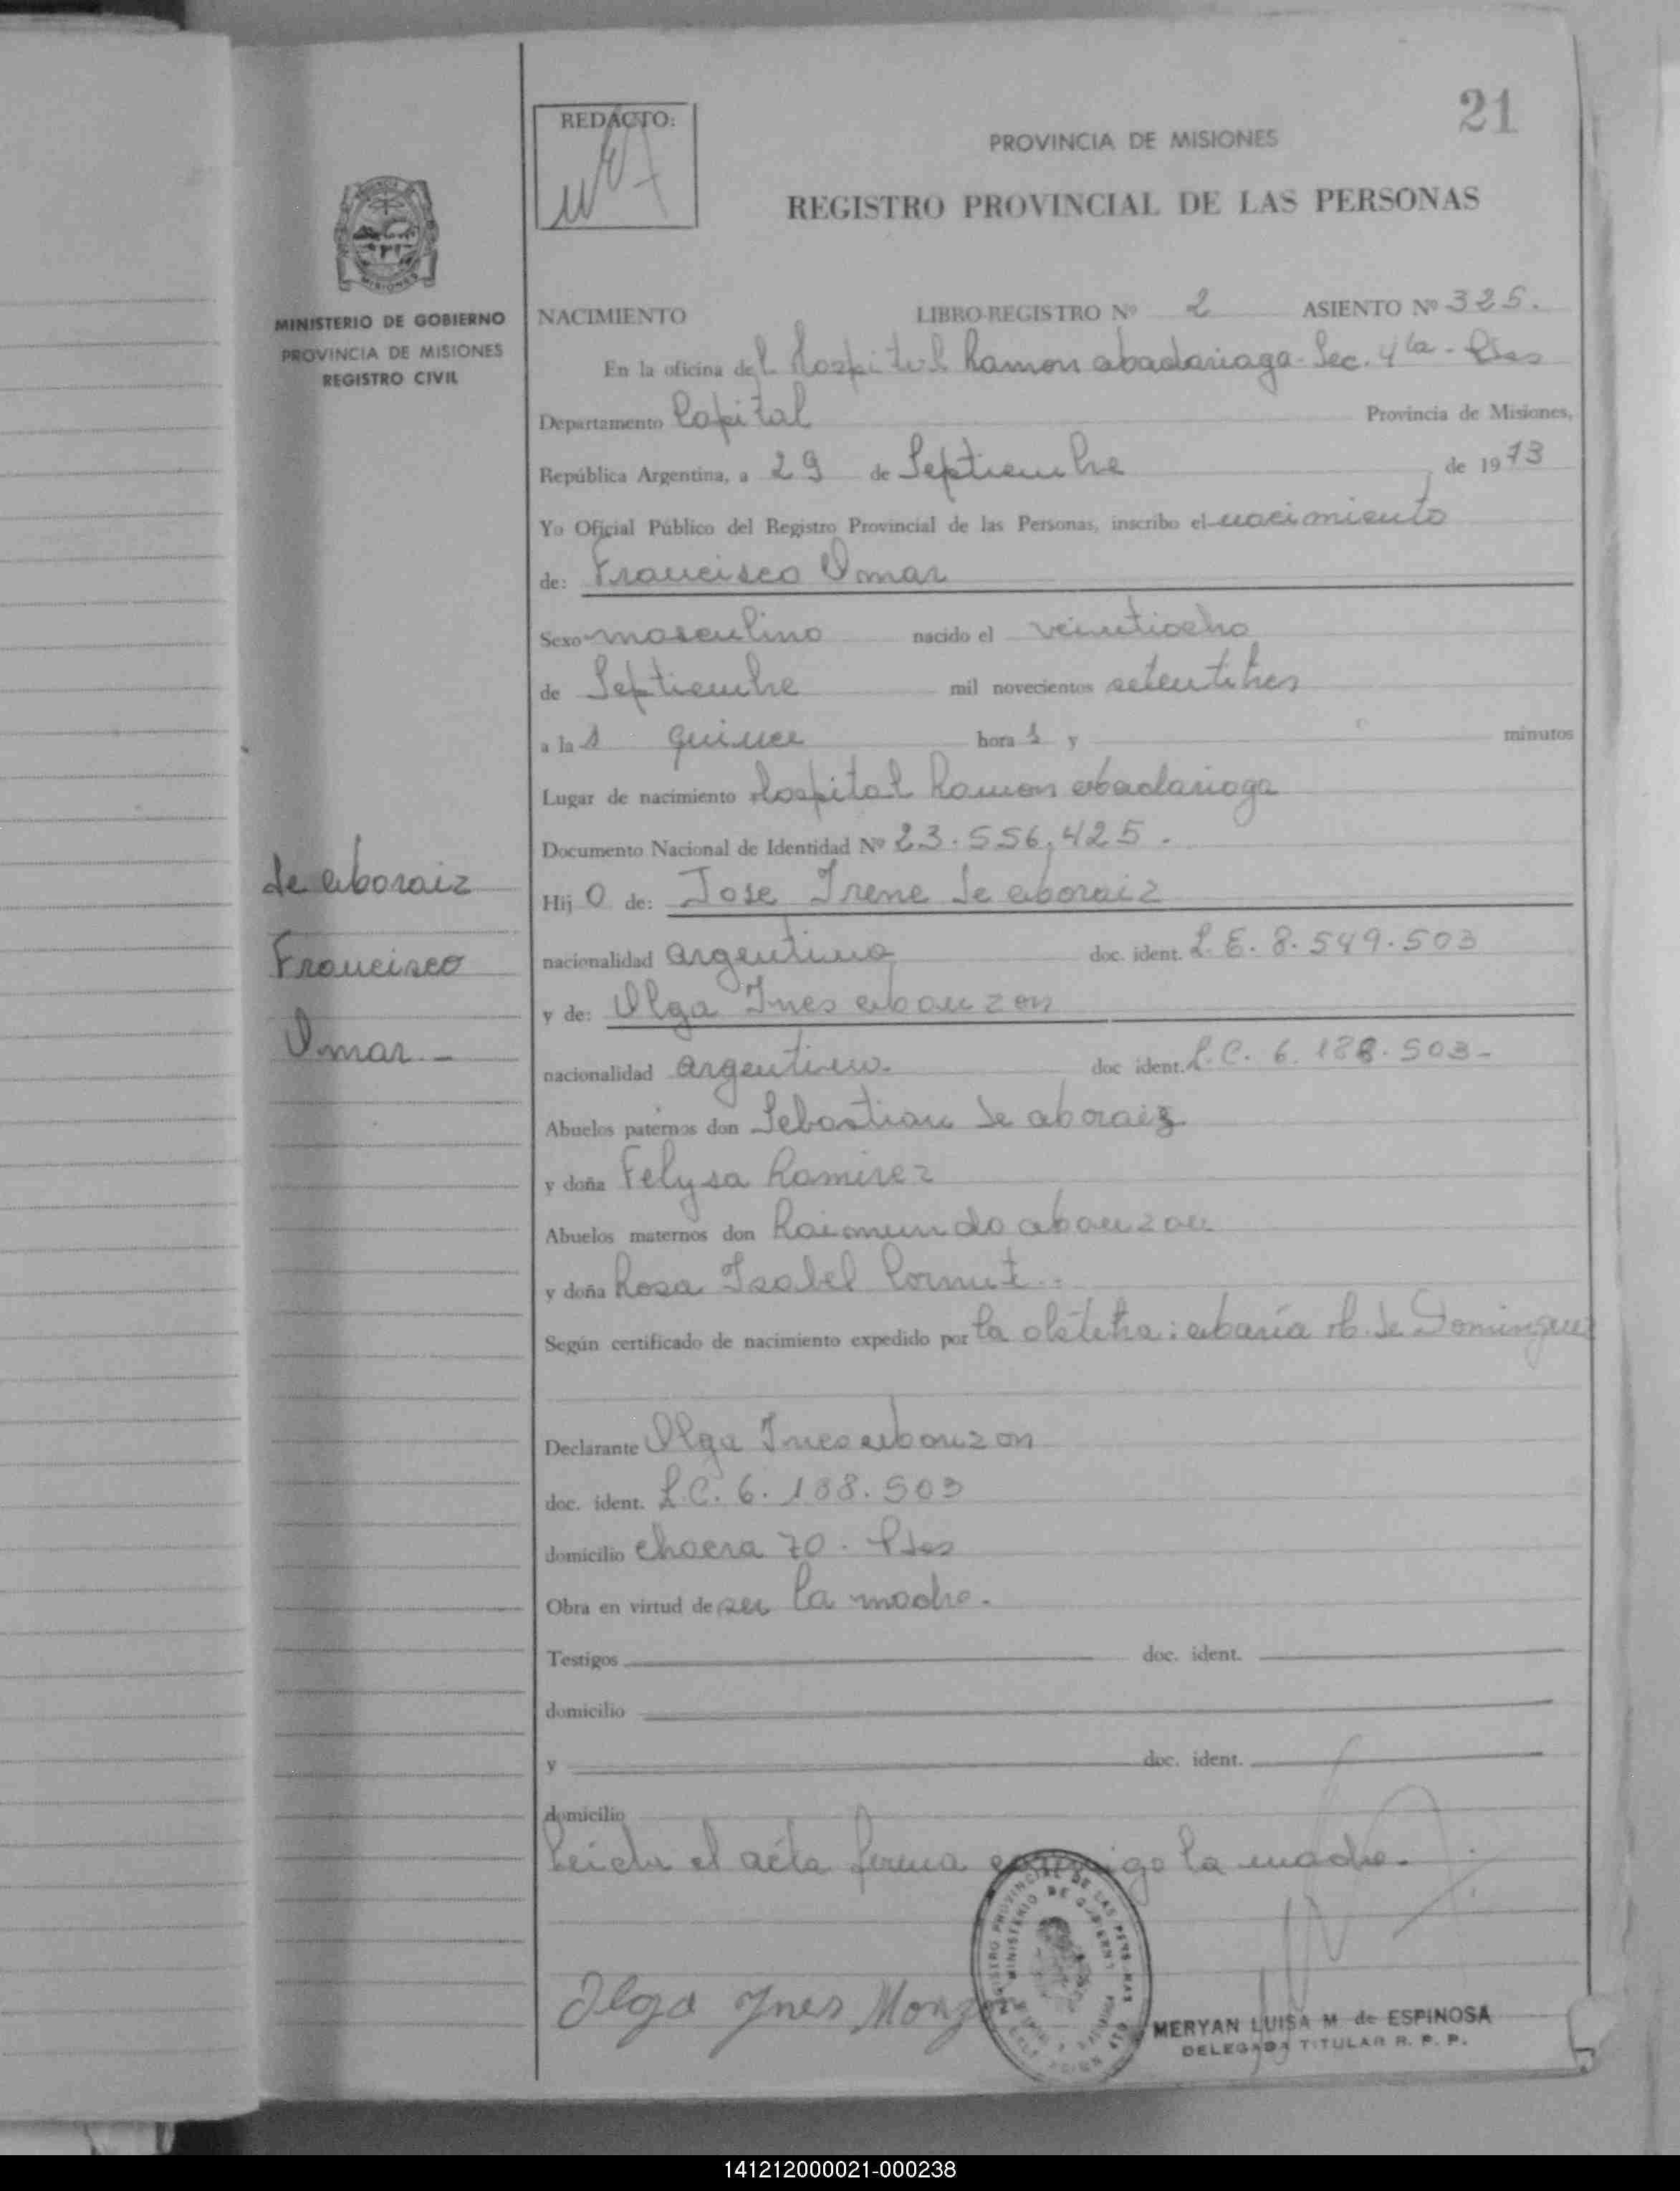 21
REDACTO:
PROVINCIA DE MISIONES
REGISTRO PROVINCIAL DE LAS PERSONAS
MINISTERIO DE GOBIERNO
PROVINCIA DE MISIONES
REGISTRO CIVIL
NACIMIENTO LIBRO-REGISTRO Nº 2 ASIENTO Nº 325.
En la oficina del Hospital Ramon Madariaga - Sec. 4ta - Pdas
Departamento Capital Provincia de Misiones,
República Argentina, a 29 de Septiembre de 1973
Yo Oficial Público del Registro Provincial de las Personas, inscribo el nacimiento
de: Francisco Omar
Sexo masculino nacido el veintiocho
de Septiembre mil novecientos setentitres
a las quince horas y minutos
Lugar de nacimiento Hospital Ramon Madariaga
Documento Nacional de Identidad Nº 23.556.425.
de Moraiz
Francisco
Omar
Hijo de: Jose Irene de Moraiz
nacionalidad argentino doc. ident. L.E. 8.549.503
y de: Olga Ines Monzon
nacionalidad argentina doc ident. L.C. 6.188.503
Abuelos paternos don Sebastian de Moraiz
y doña Felysa Ramirez
Abuelos maternos don Raimundo Monzon
y doña Rosa Isabel Cornut.
Según certificado de nacimiento expedido por la obstetra: María de Dominguez
Declarante Olga Ines Monzon
doc. ident. L.C. 6.188.503
domicilio chacra 70 - Pdas
Obra en virtud de ser la madre.
Testigos doc. ident.
domicilio
y doc. ident.
domicilio
Leida el acta firma conmigo la madre.
Olga Ynes Monzon
REGISTRO PROVINCIAL DE LAS PERSONAS
MINISTERIO DE GOBIERNO
MERYAN LUISA M. de ESPINOSA
DELEGADA TITULAR R. P. P.
141212000021-000238